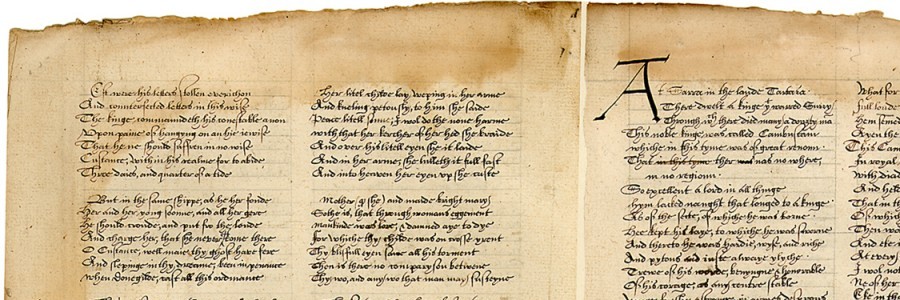 Est were his letters stollen everichon
And counterfeted letters in this wise
The kinge commaundeth his constable anon
Upon paine of hanging on an hie iewise
That he ne should suffren in no wise
Custance, within his realme for to abide
Three daies, and quarter of a tide
But in the same shippe, as he her fonde
Her and her yong sonne, and all her gere
He should croude, and put fro the londe
And charge her, that she never come there
O Custance, well maie thy ghost have fere
And sleping in thy dreame, been in penance
When Donegilde, cast all this ordinance
Her litel childe lay weping in her arme
And kneling petously, to him she saide
Peace litell sonne, I wol do the none harme
with that her kercher of her hed she braide
And over his litell eyen she it laide
And in her arme, she lulleth it full fast
And into heaven her eyen up she caste
Mother qd she, and maide bright mary
Sothe is, that through womans eggement
Mankinde was lore, & damned aye to dye
for whiche thy childe was on crosse yrent
Thy blisfull eyen sawe all his torment
Then is there no comparyson betwene
Thy wo, and any wo that man may susteyne
At Sarra in the lande Tartarie
There dwelt a kinge yt warred Surry
Though wch there died many a doughty ma
This noble kinge was called Cambuscan
whiche in this tyme was of great renom
That in this tyme ther was nas no where,
in no region
So excellent a lord in all thinge
hym lacked nought that longed to a kinge
As of the secte, of whiche he was borne
Hee kept his laye, to whiche he was sworne
And therto he was hardie, wyse, and riche
And pytous and iuste alwaye yliche
Trewe of his worde, benyngne & honorable
Of his corage, as any centre stable
What for
full loude
Hem semed
Even the
This Cam
In royal
With diad
And held
That in th
Of which
Then wo
And eke i
At every
I wol not
Ne of her
Eke in tha